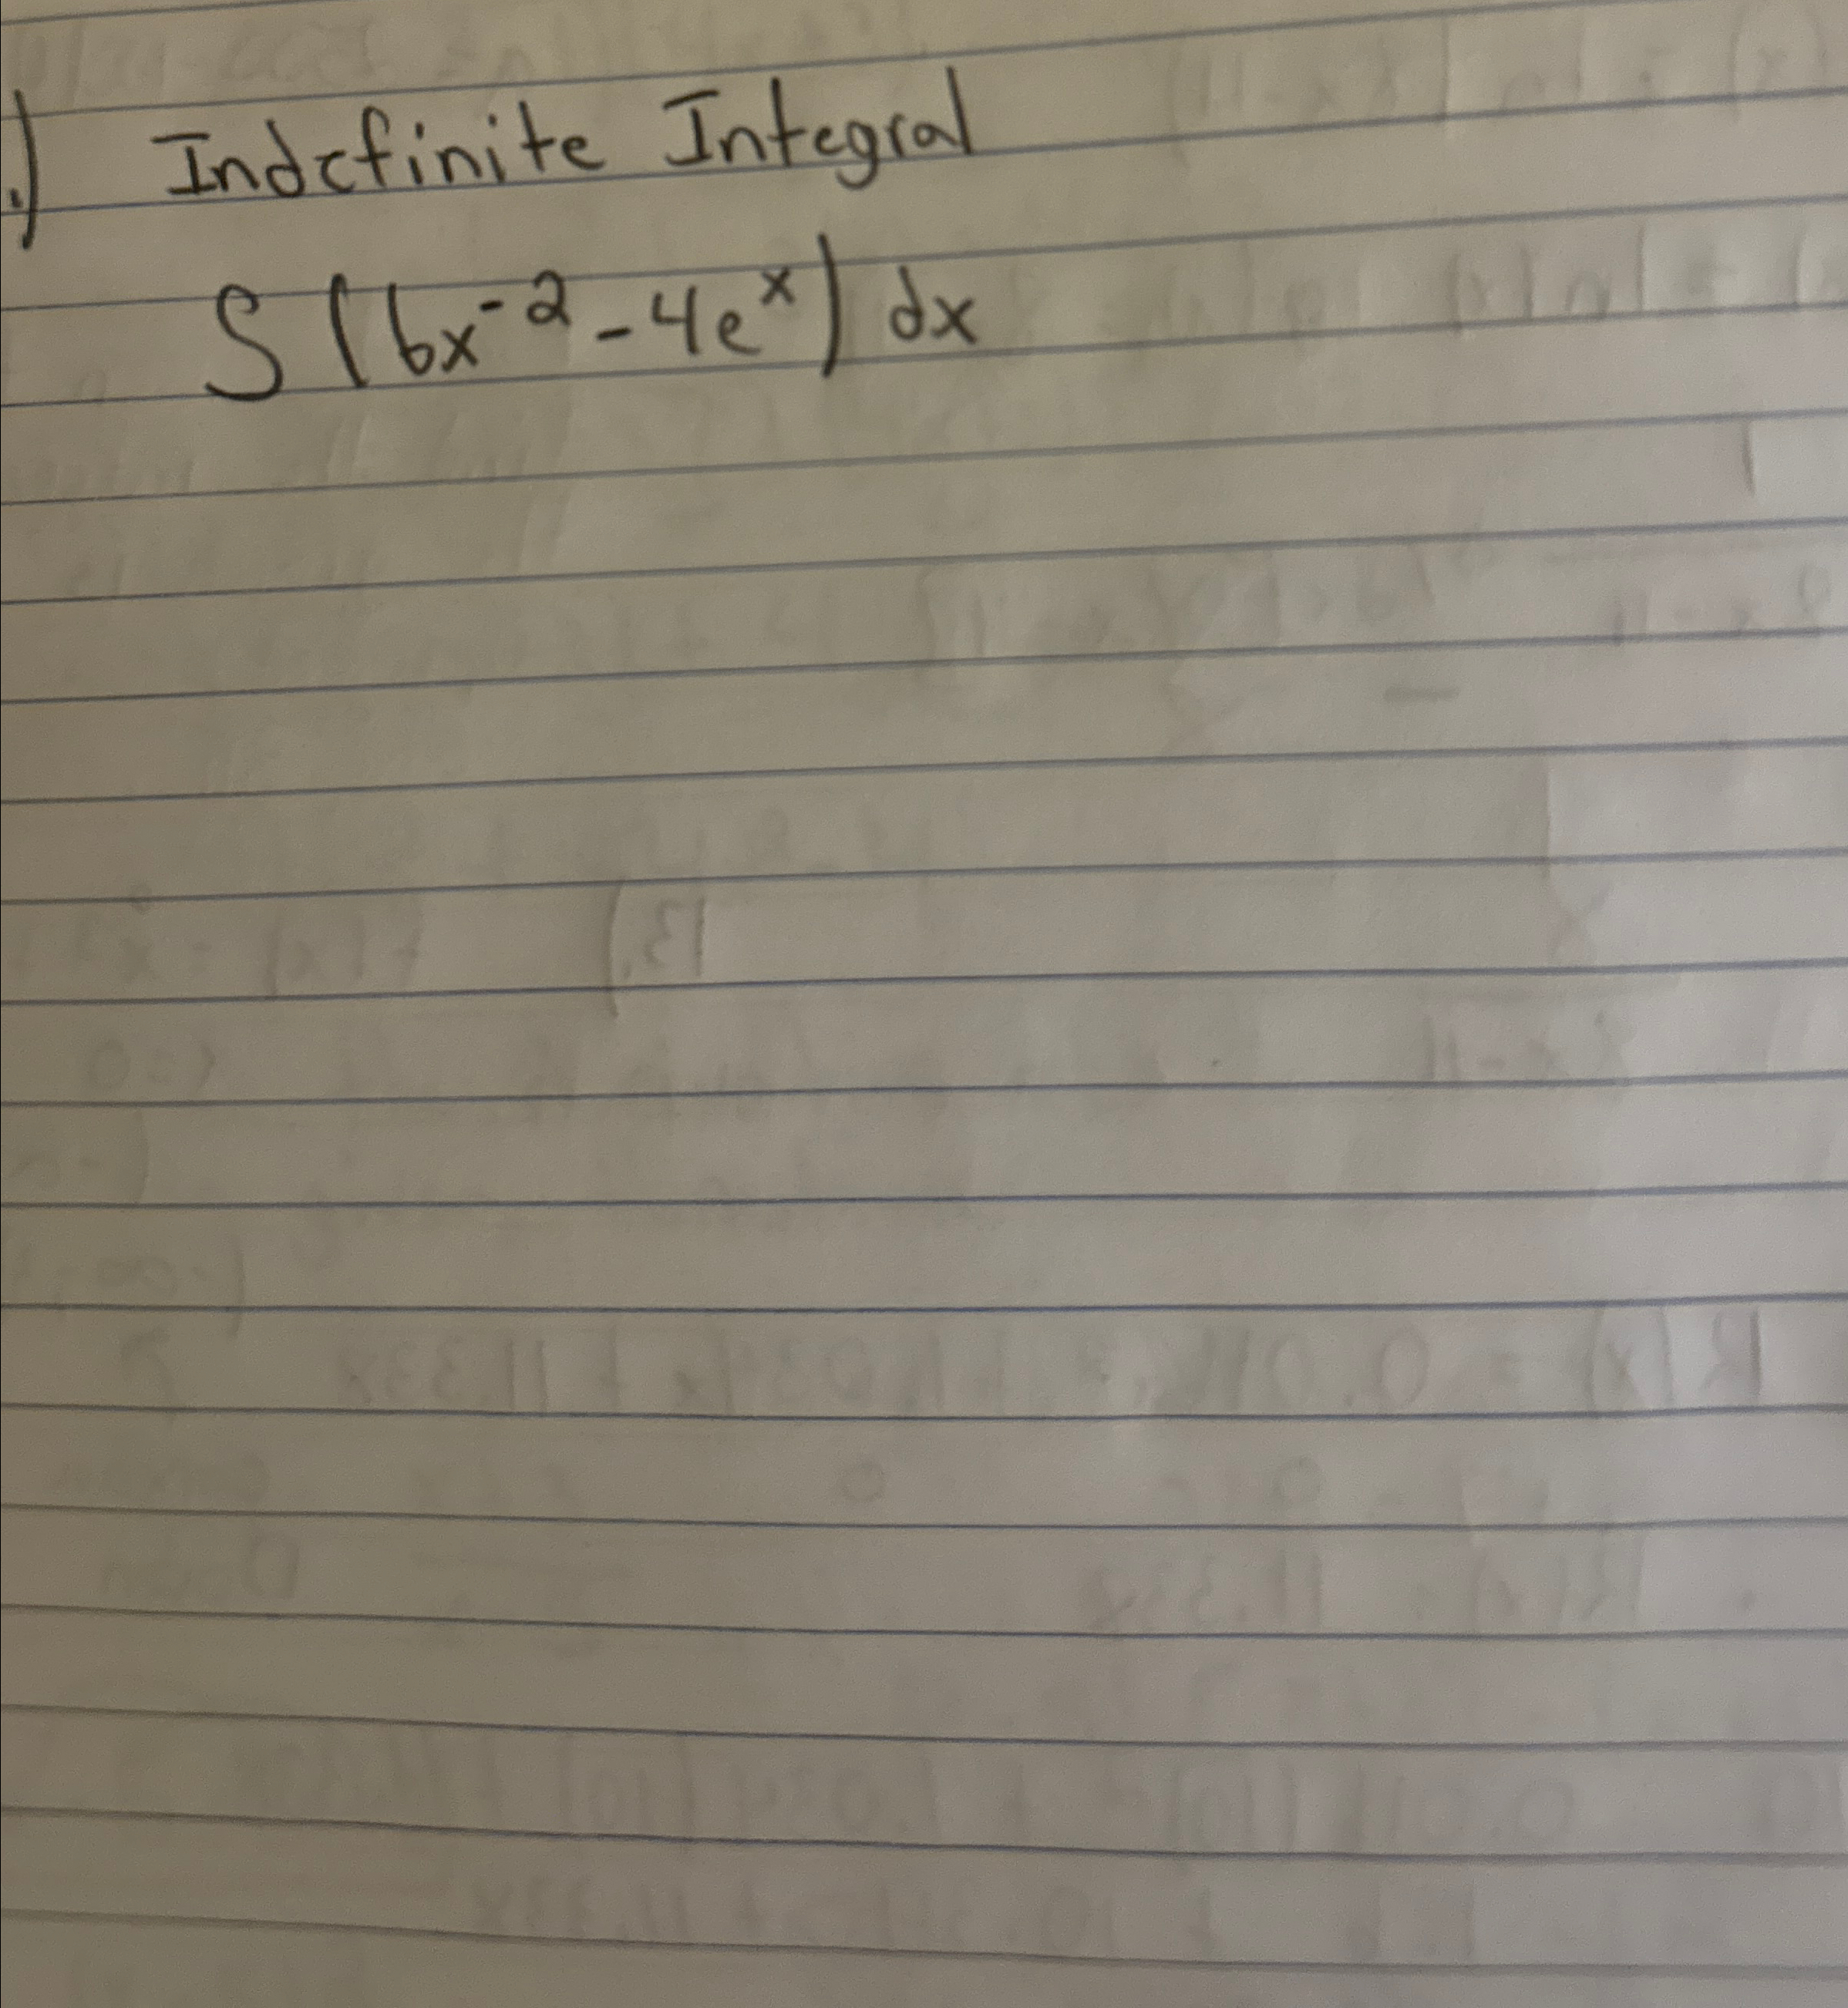 .) Indefinite Integral
∫(6x⁻² - 4eˣ) dx